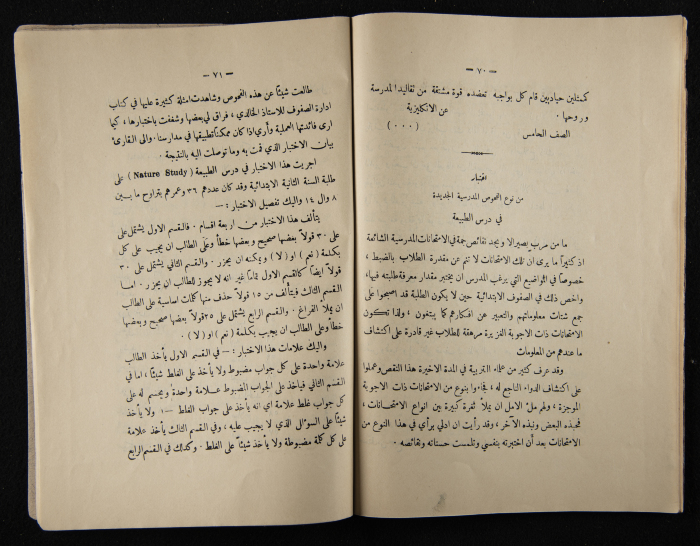 — ٧٠ —
كممثلين حياديين قام كل بواجبه تعضده قوة مشتقة من تقاليد المدرسة
وروحها .
عن الانكليزية
الصف الخامس
( ٠٠٠ )
اختبار
من نوع الفحوص المدرسية الجديدة
في درس الطبيعة
ما من مرب بصير الا ويجد نقائص جمة في الامتحانات المدرسية الشائعة
اذ كثيراً ما يرى ان تلك الامتحانات لا تنم عن مقدرة الطلاب بالضبط ،
خصوصاً في المواضيع التي يرغب المدرس ان يختبر مقدار معرفة طلبته فيها ،
واخص ذلك في الصفوف الابتدائية حين لا يكون الطلبة قد اصبحوا على
جمع شتات معلوماتهم والتعبير عن افكارهم كما يبتغون ، ولذا تكون
الامتحانات ذات الاجوبة الغزيرة مرهقة للطلاب غير قادرة على اكتشاف
ما عندهم من المعلومات
وقد عرف كثير من علماء التربية في المدة الاخيرة هذا النقص وعملوا
على اكتشاف الدواء الناجع له ، فجاءوا بنوع من الامتحانات ذات الاجوبة
الموجزة ، ولهم ملء الامل ان يملأ ثغرة كبيرة بين انواع الامتحانات ،
فحبذه البعض ونبذه الآخر ، وقد رأيت ان ادلي برأي في هذا النوع من
الامتحانات بعد أن اختبرته بنفسي وتلمست حسناته ونقائصه .
— ٧١ —
طالعت شيئاً عن هذه الفحوص وشاهدت امثلة كثيرة عليها في كتاب
ادارة الصفوف للاستاذ الخالدي ، فراق لي بعضها وشغفت باختبارها ، كيما
ارى فائدتها العملية وأرى اذا كان ممكناً تطبيقها في مدارسنا . والى القارئ
بيان الاختبار الذي قمت به وما توصلت اليه بالنتيجة .
اجريت هذا الاختبار في درس الطبيعة ( Nature Study ) على
طلبة السنة الثانية الابتدائية وقد كان عددهم ٣٦ وعمرهم يتراوح ما بين
٨ وال ١٤ واليك تفصيل الاختبار : —
يتألف هذا الاختبار من اربعة اقسام . فالقسم الاول يشتمل على
على ٣٠ قولاً بعضها صحيح وبعضها خطأ وعلى الطالب ان يجيب على كل
بكلمة ( نعم ) او ( لا ) ويمكنه ان يحزر . والقسم الثاني يشتمل على ٣٠
قولاً ايضاً كالقسم الاول تماماً غير انه لا يجوز للطالب ان يحزر . اما
القسم الثالث فيتألف من ١٥ قولاً حذف منها كلمات اساسية على الطالب
ان يملأ الفراغ . والقسم الرابع يشتمل على ٢٥ قولاً بعضها صحيح وبعضها
خطأ وعلى الطالب ان يجيب بكلمة ( نعم ) او ( لا ) .
واليك علامات هذا الاختبار : — في القسم الاول يأخذ الطالب
علامة واحدة على كل جواب مضبوط ولا يأخذ على الغلط شيئاً ، اما في
القسم الثاني فيأخذ على الجواب المضبوط علامة واحدة ويحسم له على
كل جواب غلط علامة اي انه يأخذ على جواب الغلط —١ ولا يأخذ
شيئاً على السؤال الذي لا يجيب عليه ، وفي القسم الثالث يأخذ علامة
على كل كلمة مضبوطة ولا يأخذ شيئاً على الغلط . وكذلك في القسم الرابع